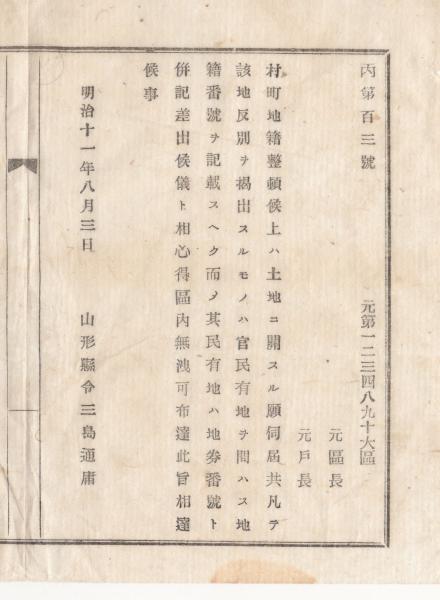 丙第百三號
元第一二三四八九十大區
元區長
元戶長
村町地籍整頓候上ハ土地ニ關スル願伺屆共凡テ
該地反別ヲ揭出スルモノハ官民有地ヲ問ハス地
籍番號ヲ記載スヘク而〆其民有地ハ地券番號ト
併記差出候儀ト相心得區內無洩可布達此旨相達
候事
明治十一年八月三日
山形縣令三島通庸